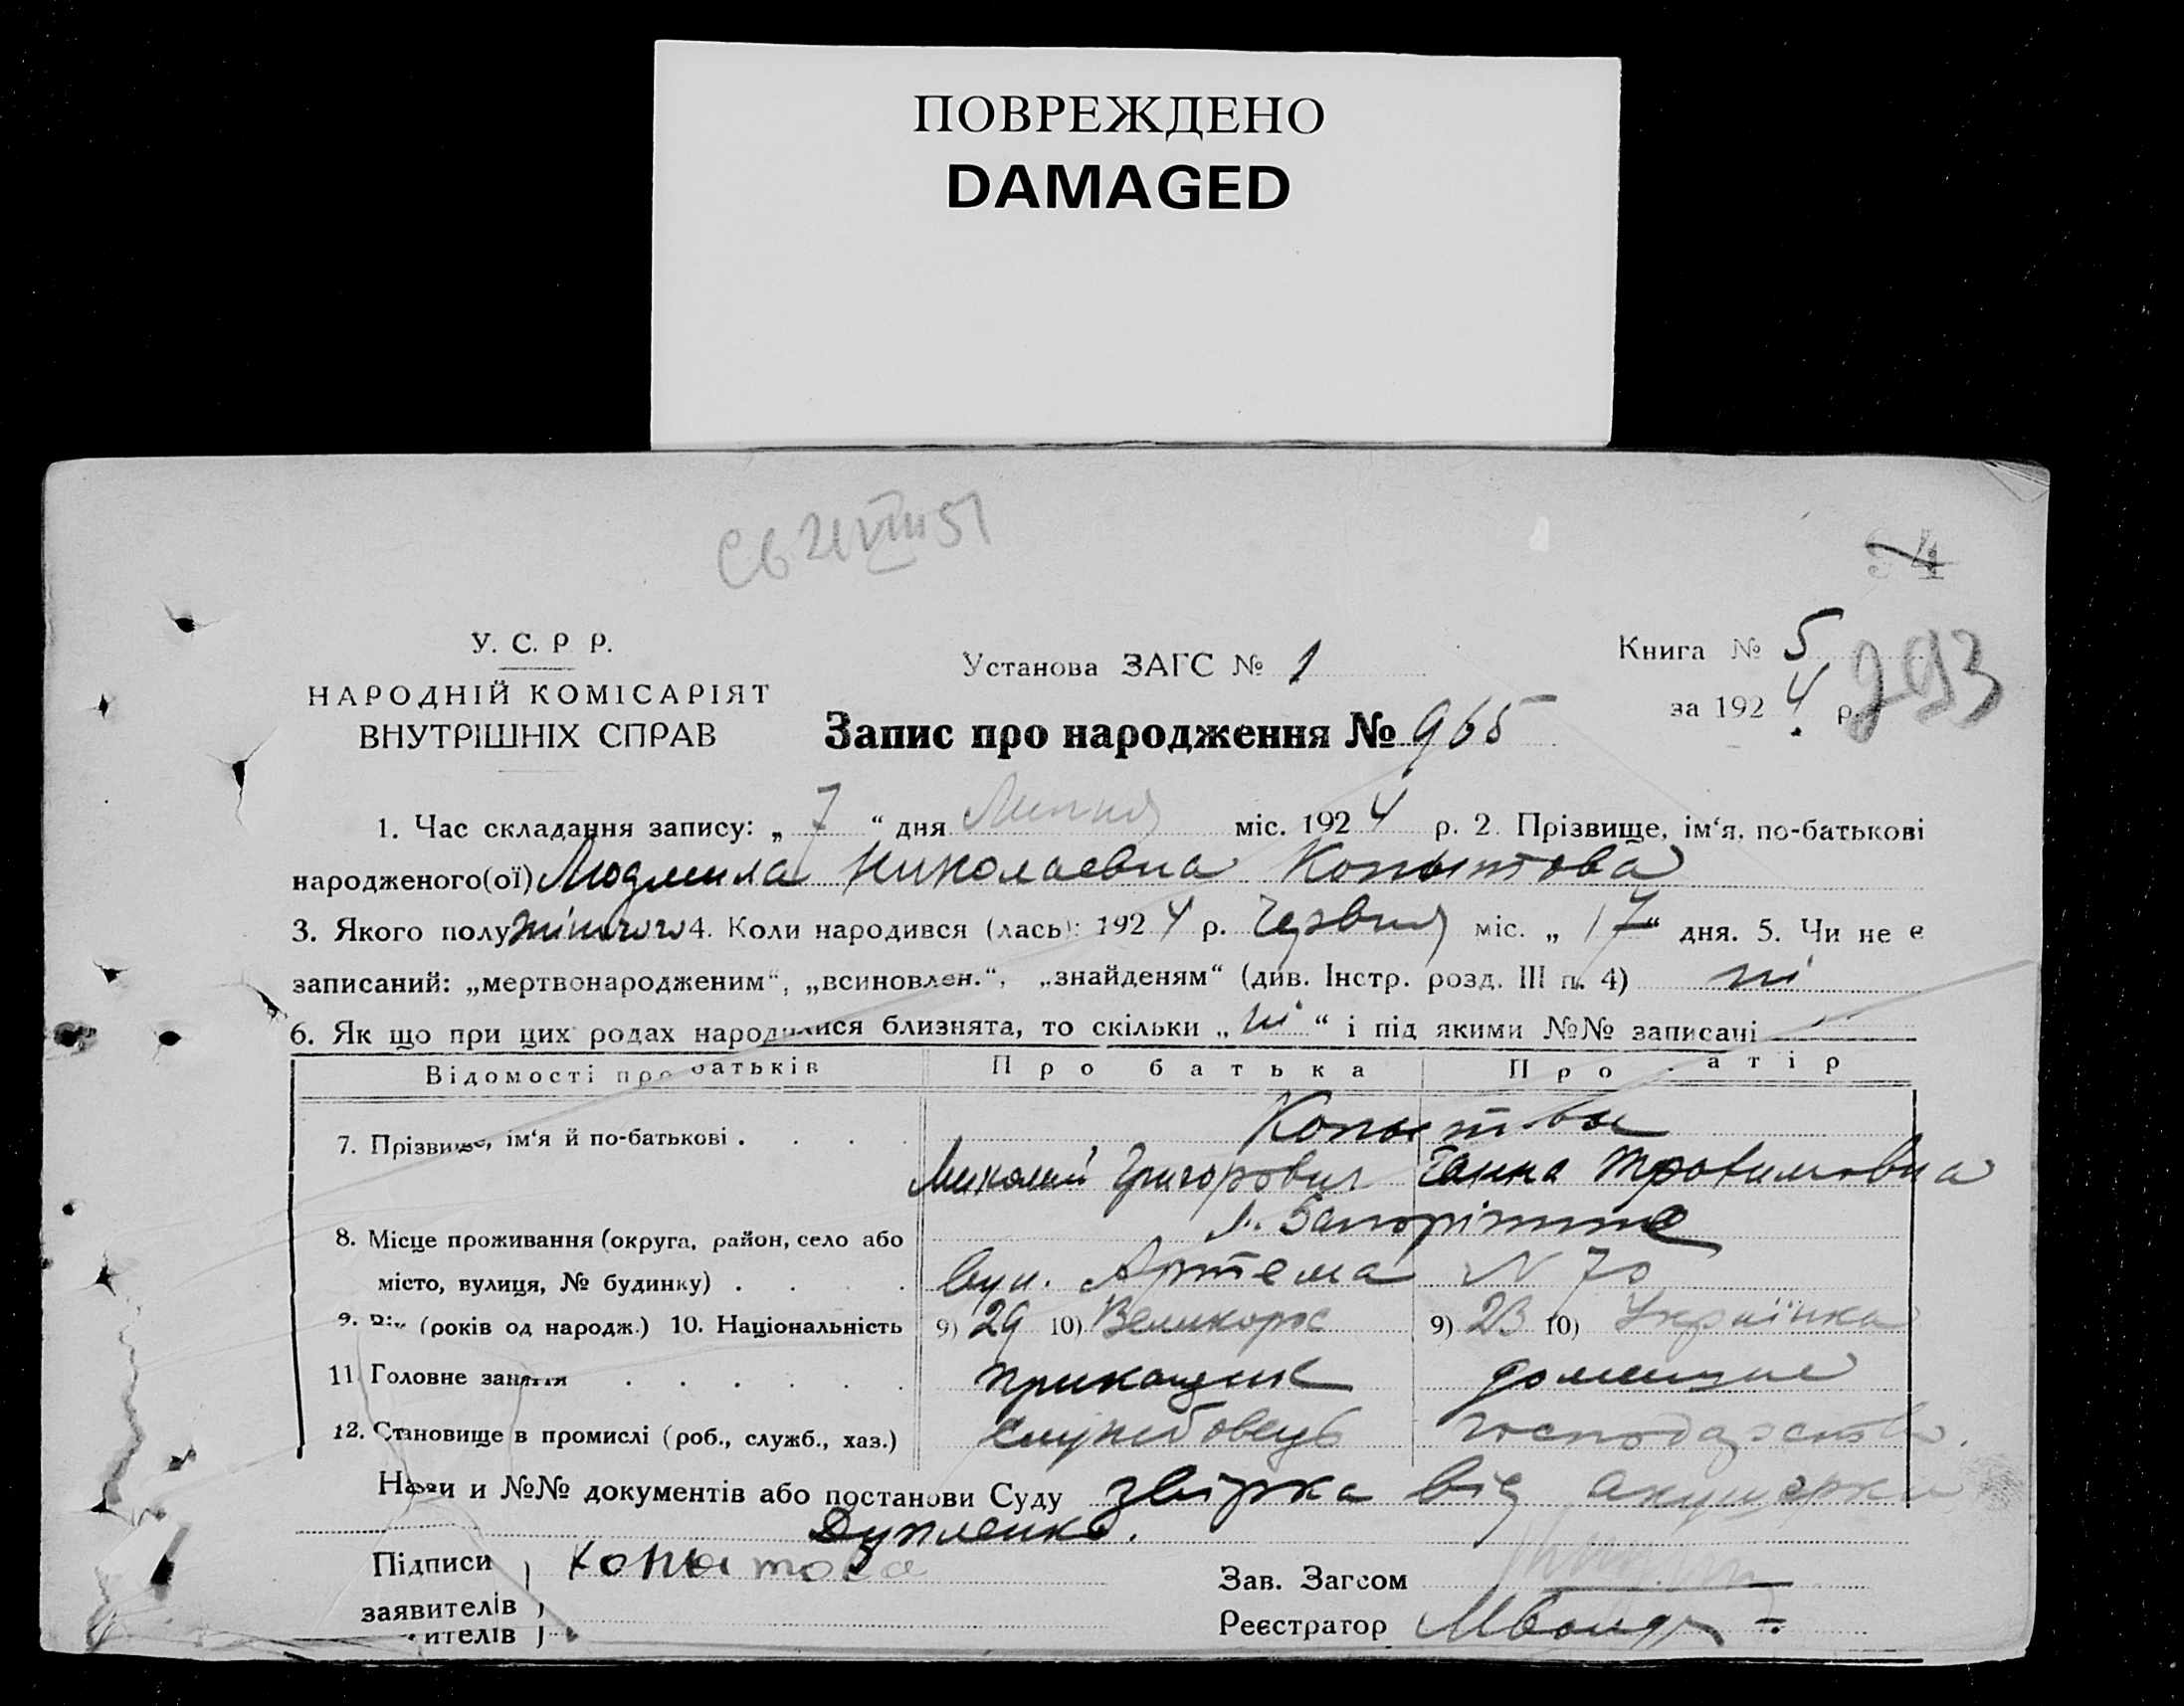 ПОВРЕЖДЕНО
DAMAGED
Св 21 VIII 51
54
У. С. Р Р.
НАРОДНІЙ КОМІСАРІЯТ
ВНУТРІШНІХ СПРАВ
Установа ЗАГС № 1
Книга № 5
за 1924 р.
293
Запис про народження № 965
1. Час складання запису: „ 7 “ дня Липня міс. 1924 р. 2. Прізвище, ім‘я, по-батькові
народженого(ої) Людмила Николаевна Копытова
3. Якого полу жіночого 4. Коли народився (лась): 1924 р. Червня міс. „ 17 “ дня. 5. Чи не є
записаний: „мертвонародженим“, „всиновлен.“, „знайденям“ (див. Інстр. розд. III п. 4) ні
6. Як що при цих родах народилися близнята, то скільки „ ні “ і під якими №№ записані
Відомості про батьків Про батька Про матір
Копытовы
7. Прізвище, ім‘я й по-батькові . . . . Миколай Григорович Ганна Трофимовна
8. Місце проживання (округа, район, село або м. Запоріжжє
місто, вулиця, № будинку) . . . . вул. Артема N 70
9. Вік (років од народж.) 10. Національність 9) 29 10) Великорос 9) 23 10) Українка
11. Головне заняття . . . . . . прикащик домашне
12. Становище в промислі (роб., служб., хаз.) службовець господарство.
Назви и №№ документів або постанови Суду звірка від акушерки
Дупленко.
Підписи
заявителів
ителів
Копытова
Зав. Загсом
Реєстратор